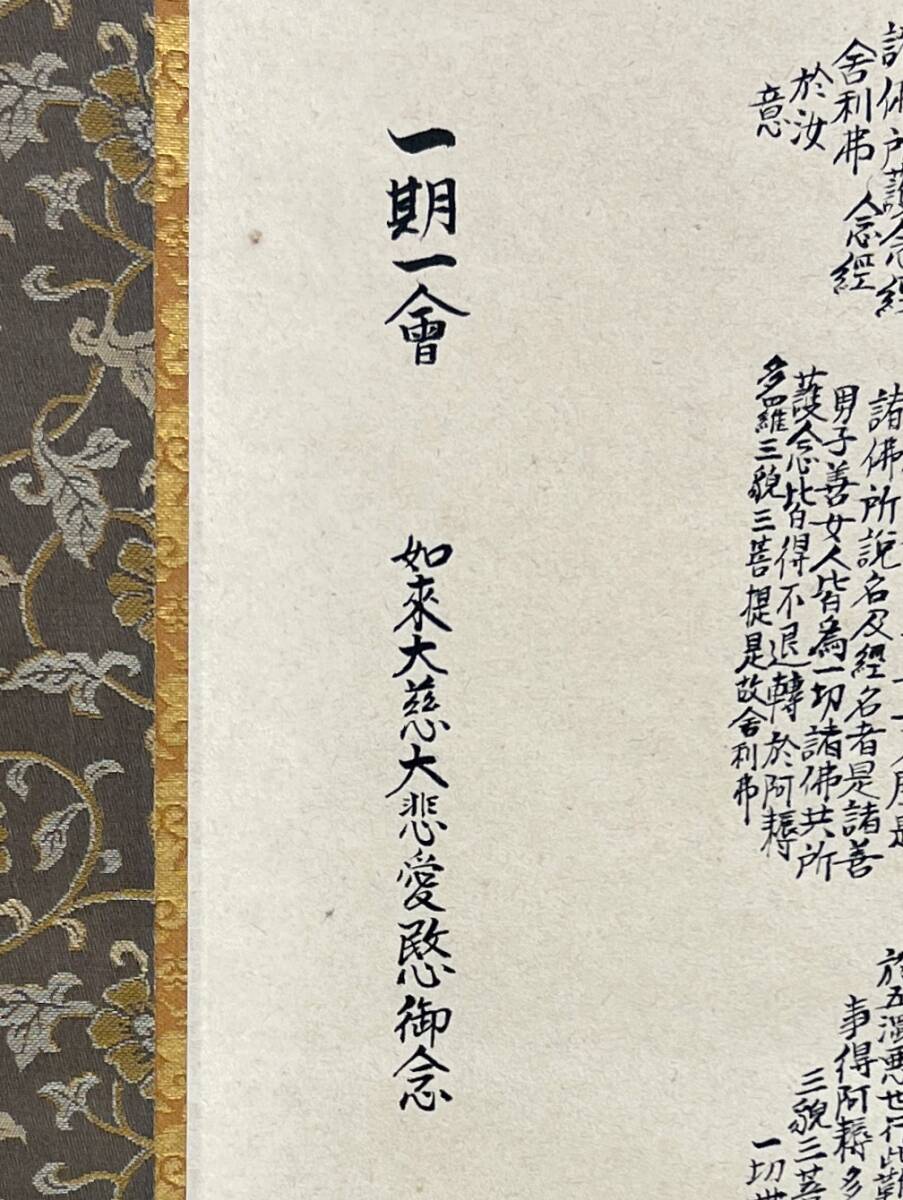 諸佛所護念經
舍利弗 念經
於汝
意
諸佛所說名及經名者是諸善
男子善女人皆為一切諸佛共所
護念皆得不退轉於阿耨
多羅三藐三菩提是故舍利弗
於五濁惡世行此難
事得阿耨多
三藐三菩
一切世
一期一會
如來大慈大悲愛愍御念